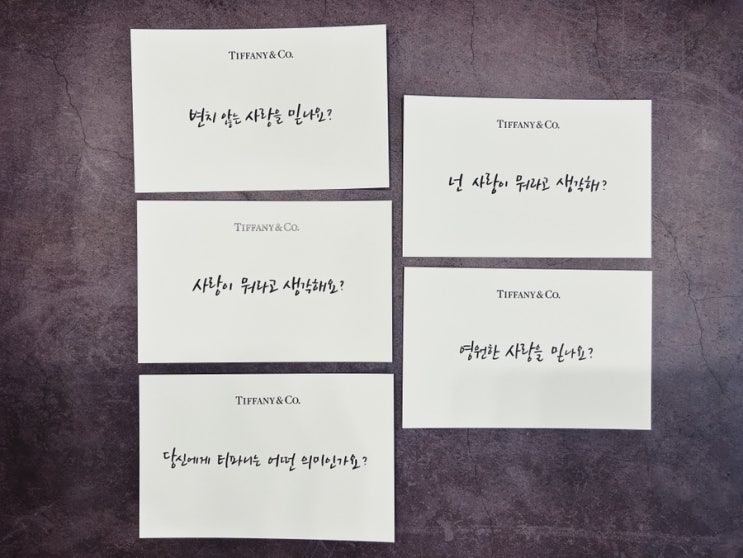 TIFFANY & CO.
변치 않는 사랑을 믿나요?
TIFFANY & CO.
사랑이 뭐라고 생각해요?
TIFFANY & CO.
당신에게 티파니는 어떤 의미인가요?
TIFFANY & CO.
넌 사랑이 뭐라고 생각해?
TIFFANY & CO.
영원한 사랑을 믿나요?